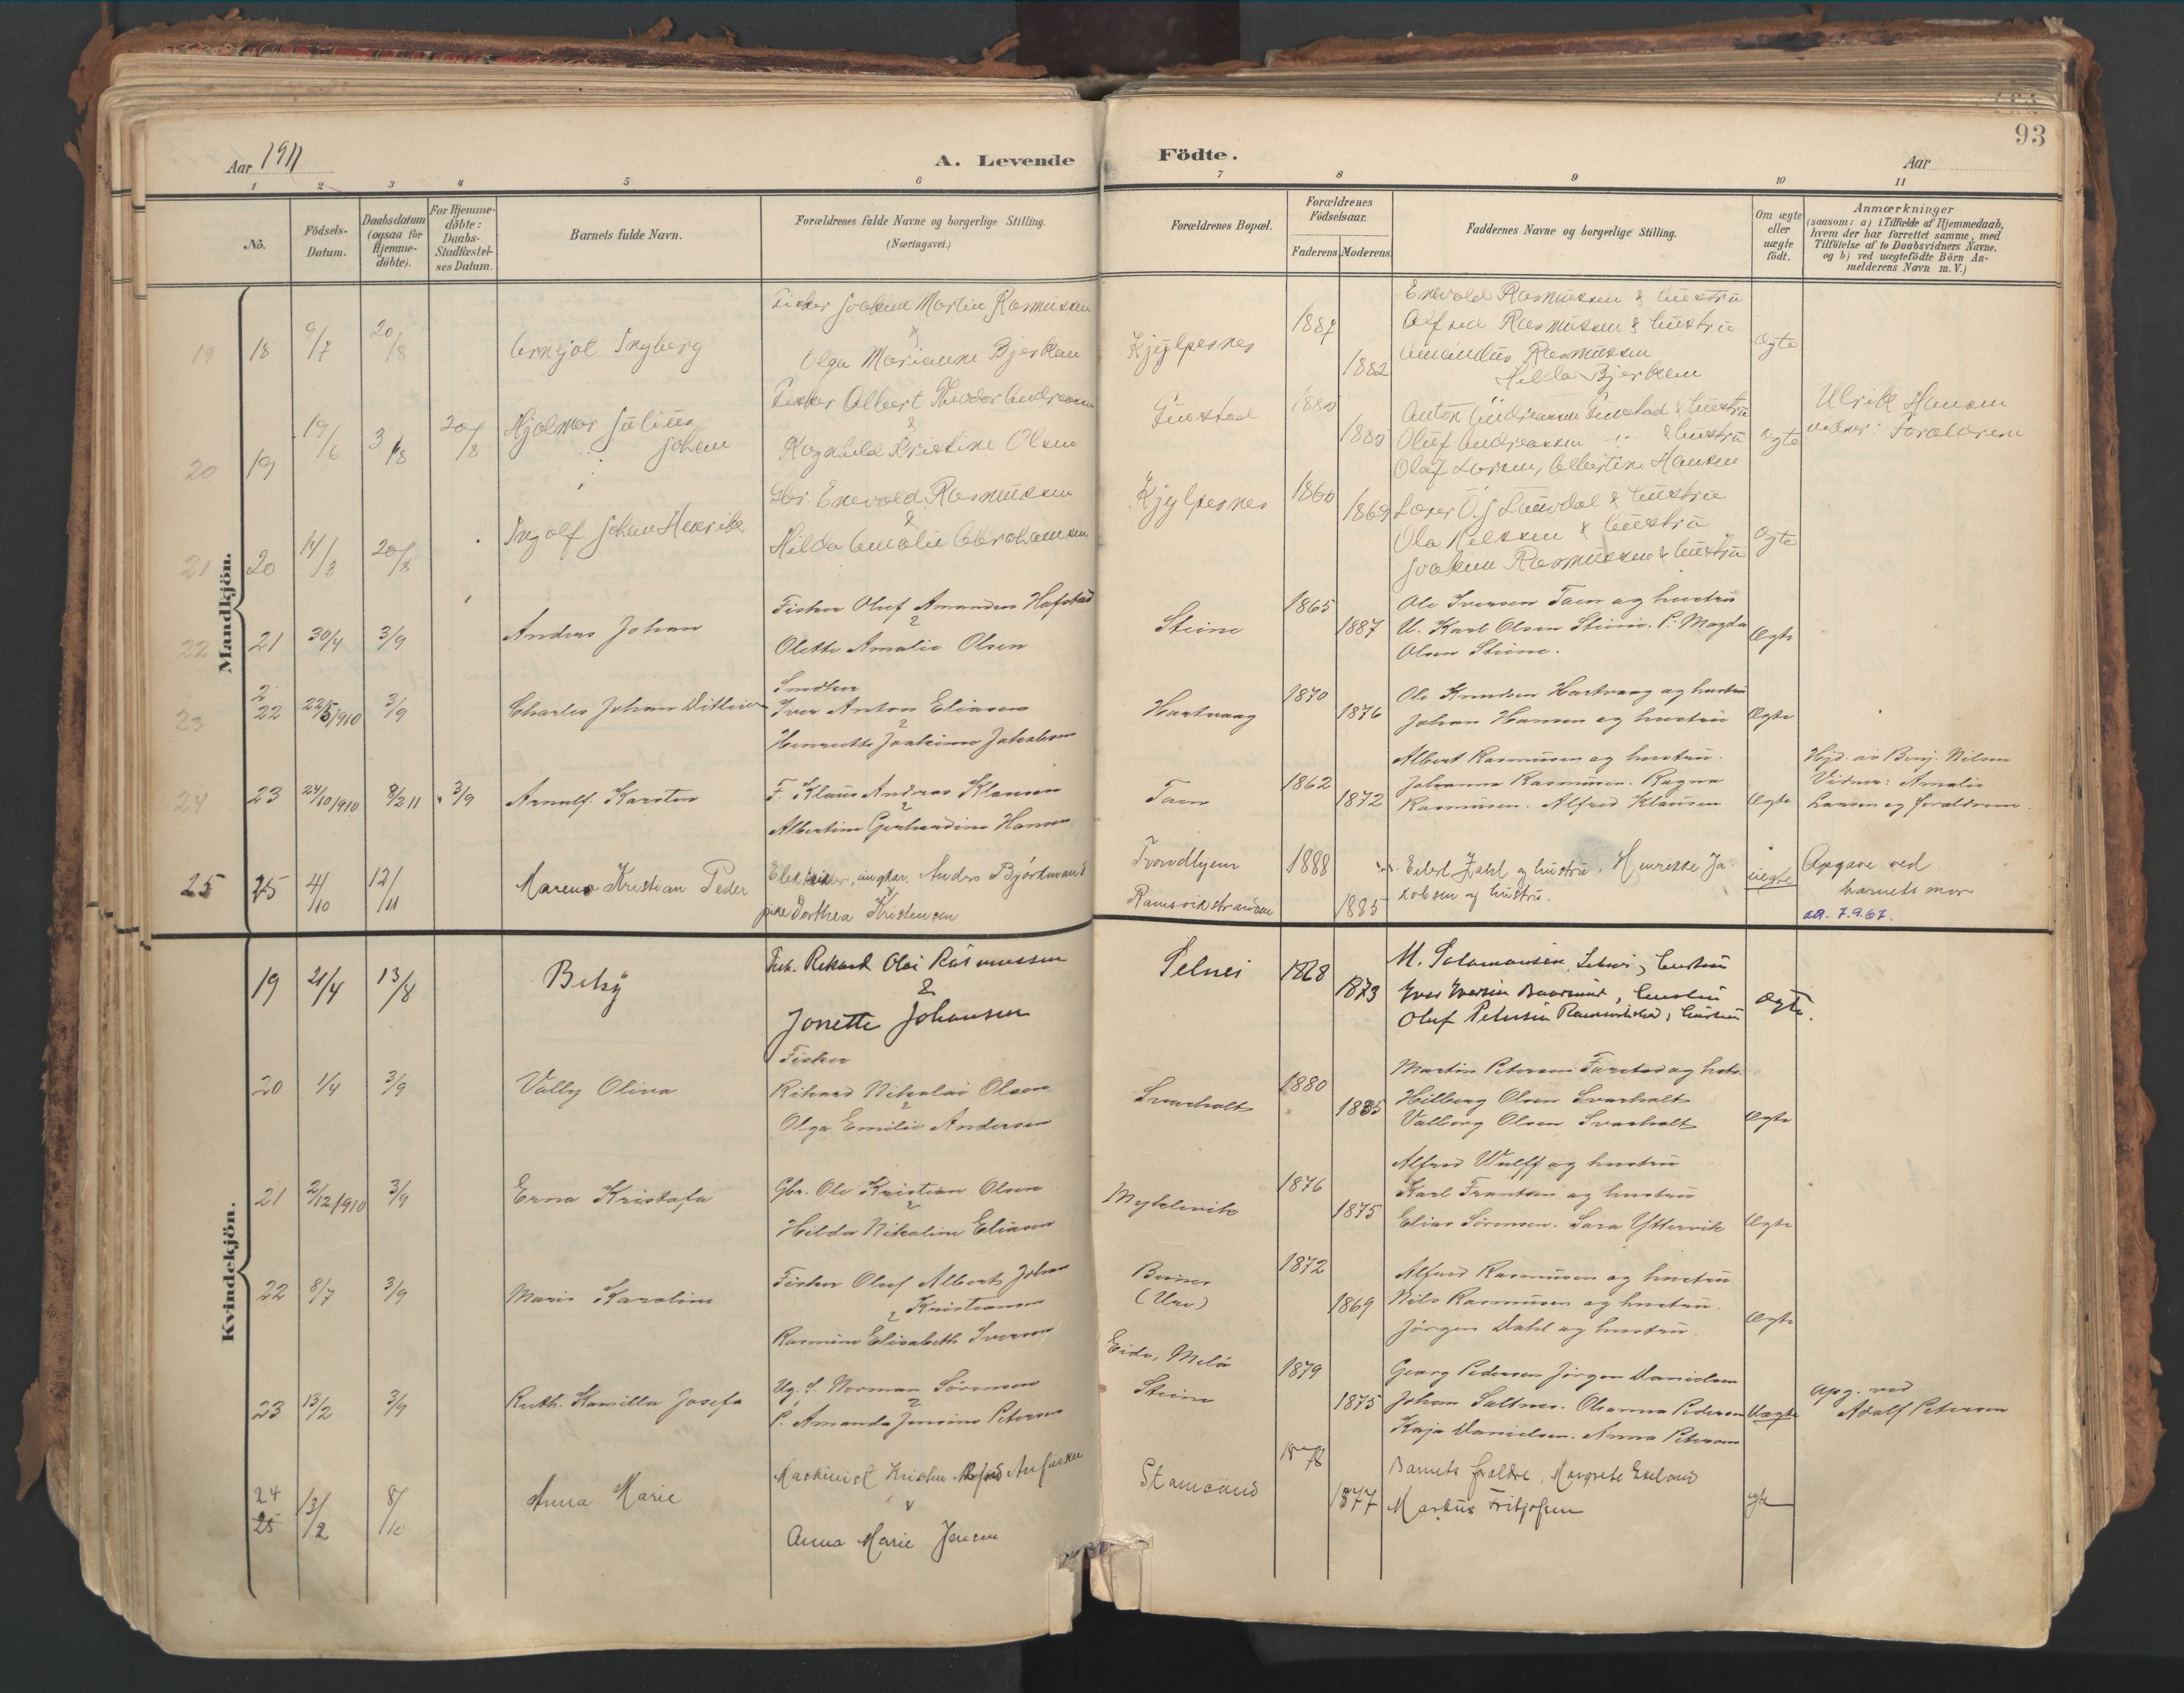 93
Aar 1911
A. Levende
Födte.
Aar
1 2 3 4 5 6 7 8 9 10 11
No.
Födsels-
Datum.
Daabsdatum
(ogsaa for
Hjemme-
döbte).
For Hjemme-
döbte:
Daabs-
Stadfæstel-
ses Datum.
Barnets fulde Navn.
Forældrenes fulde Navne og borgerlige Stilling.
(Næringsvei.)
Forældrenes Bopæl.
Forældrenes
Födselsaar.
Faderens Moderens
Faddernes Navne og borgerlige Stilling.
Om ægte
eller
uægte
födt.
Anmærkninger
(saasom: a) i Tilfælde af Hjemmedaab,
hvem der har forrettet samme, med
Tilföielse af to Daabsvidners Navne,
og b) ved uægtefödte Börn An-
melderens Navn m. V.)
Mandkjön.
19 18 9/7 20/8
Arnljot Ingberg
Fisker Joakim Martin Rasmussen
&
Olga Marianne Bjerkan
Kjylpesnes
1887
1882
Enevold Rasmussen & hustru
Alfred Rasmussen & hustru
Amandus Rasmussen
Hilda Bjerkan
Ægte
20 19 19/6 3/8 20/8
Hjalmar Julius
Johan
Fisker Albert Theodor Andreassen
&
Ragnhild Kristine Olsen
Finstad
1880
1885
Anton Andreassen Finstad & hustru
Oluf Andreassen & hustru
Olaf Larsen, Albertine Hansen
Ægte
Ulrik Hansen
vidner: Forældrene
21 20 14/3 20/8
Ingolf Johan Henrik
Gbr. Enevold Rasmussen
&
Hilda Amalie Abrahamsen
Kjylpesnes
1860
1869
Lærer O. J. Lauvdal & hustru
Ola Nilssen & hustru
Joakim Rasmussen & hustru
Ægte
22 21 30/4 3/9
Anders Johan
Fisker Oluf Amandus Hafstad
&
Olette Amalie Olsen
Steine
1865
1887
Ole Iversen Taen og hustru
U. Karl Olsen Steine. P. Magda
Olsen Steine.
Ægte
23 22 22/5 1910 3/9
Charles Johan Ditlev
Snedker
Iver Anton Eliasen
&
Henriette Joakime Jakobsen
Hartvaag
1870
1876
Ole Knudsen Hartvaag og hustru
Johan Hansen og hustru
Ægte
24 23 24/10 1910 8/2 11 3/9
Arnulf Karsten
F. Klaus Andreas Klausen
&
Albertine Gerhardine Hansen
Taen
1862
1872
Albert Rasmussen og hustru.
Johanna Rasmussen. Ragna
Rasmussen. Alfred Klausen
Ægte
Hjd. av Benj. Nilsen
Vidner: Amalie
Larsen og forældrene.
25 25 4/10 12/11
Marens Kristian Peder
Elektriker, ungkar, Anders Björkmand
&
pike Dorthea Kristensen
Trondhjem
Ramsvikstranden
1888
1885
Eilert Zahl og hustru, Henrikke Ja-
kobsen og hustru.
uægte
Opgave ved
barnets mor
aa. 7.9.67.
Kvindekjön.
19 21/4 13/8
Betsy
Fisk. Rikard Olai Rasmussen
&
Jonette Johansen
Selnes
1868
1873
M. Salamonsen, Selnes, hustru
Iver Iversen, hustru
Oluf Petersen, hustru
Ægte.
20 1/4 3/9
Vally Oliva
Fisker
Rikard Nikolai Olsen
&
Olga Emilie Andersen
Svarholt
1880
1885
Martin Petersen Farstad og hstr.
Hilberg Olsen Svarholt
Valborg Olsen Svarholt
Ægte
21 2/12 1910 3/9
Erna Kristofa
Gbr. Ole Kristian Olsen
&
Hilda Nikoline Eliasen
Myklevik
1876
1875
Alfred Wulff og hustru
Karl Frantsen og hustru
Elias Sörensen. Sara Yttervik
Ægte
22 8/7 3/9
Marie Karoline
Fisker Oluf Alberts Johan
Kristiansen
&
Rasmine Elisabeth Iversen
(Ure)
1872
1869
Alfred Rasmussen og hustru
Nils Rasmussen og hustru.
Jörgen Dahl og hustru.
Ægte
23 13/2 3/9
Ruth Kamilla Josefa
Ug. S. Norman Sörensen
&
P. Amanda Jensine Petersen
Eide, Melö
Steine
1879
1875
Georg Pedersen Jörgen Danielsen
Johan Saltnes. Oleanna Pedersen
Kaja Danielsen. Anna Petersen
Uægte
Opg. ved
Adolf Petersen
24
25 13/2 8/10
Anna Marie
Maskinist Kristen Anfinsen
&
Anna Marie Jensen
Stamsund
1878
1877
Barnets forældre, Margrete Eseland
Markus Fritjofsen
ægte